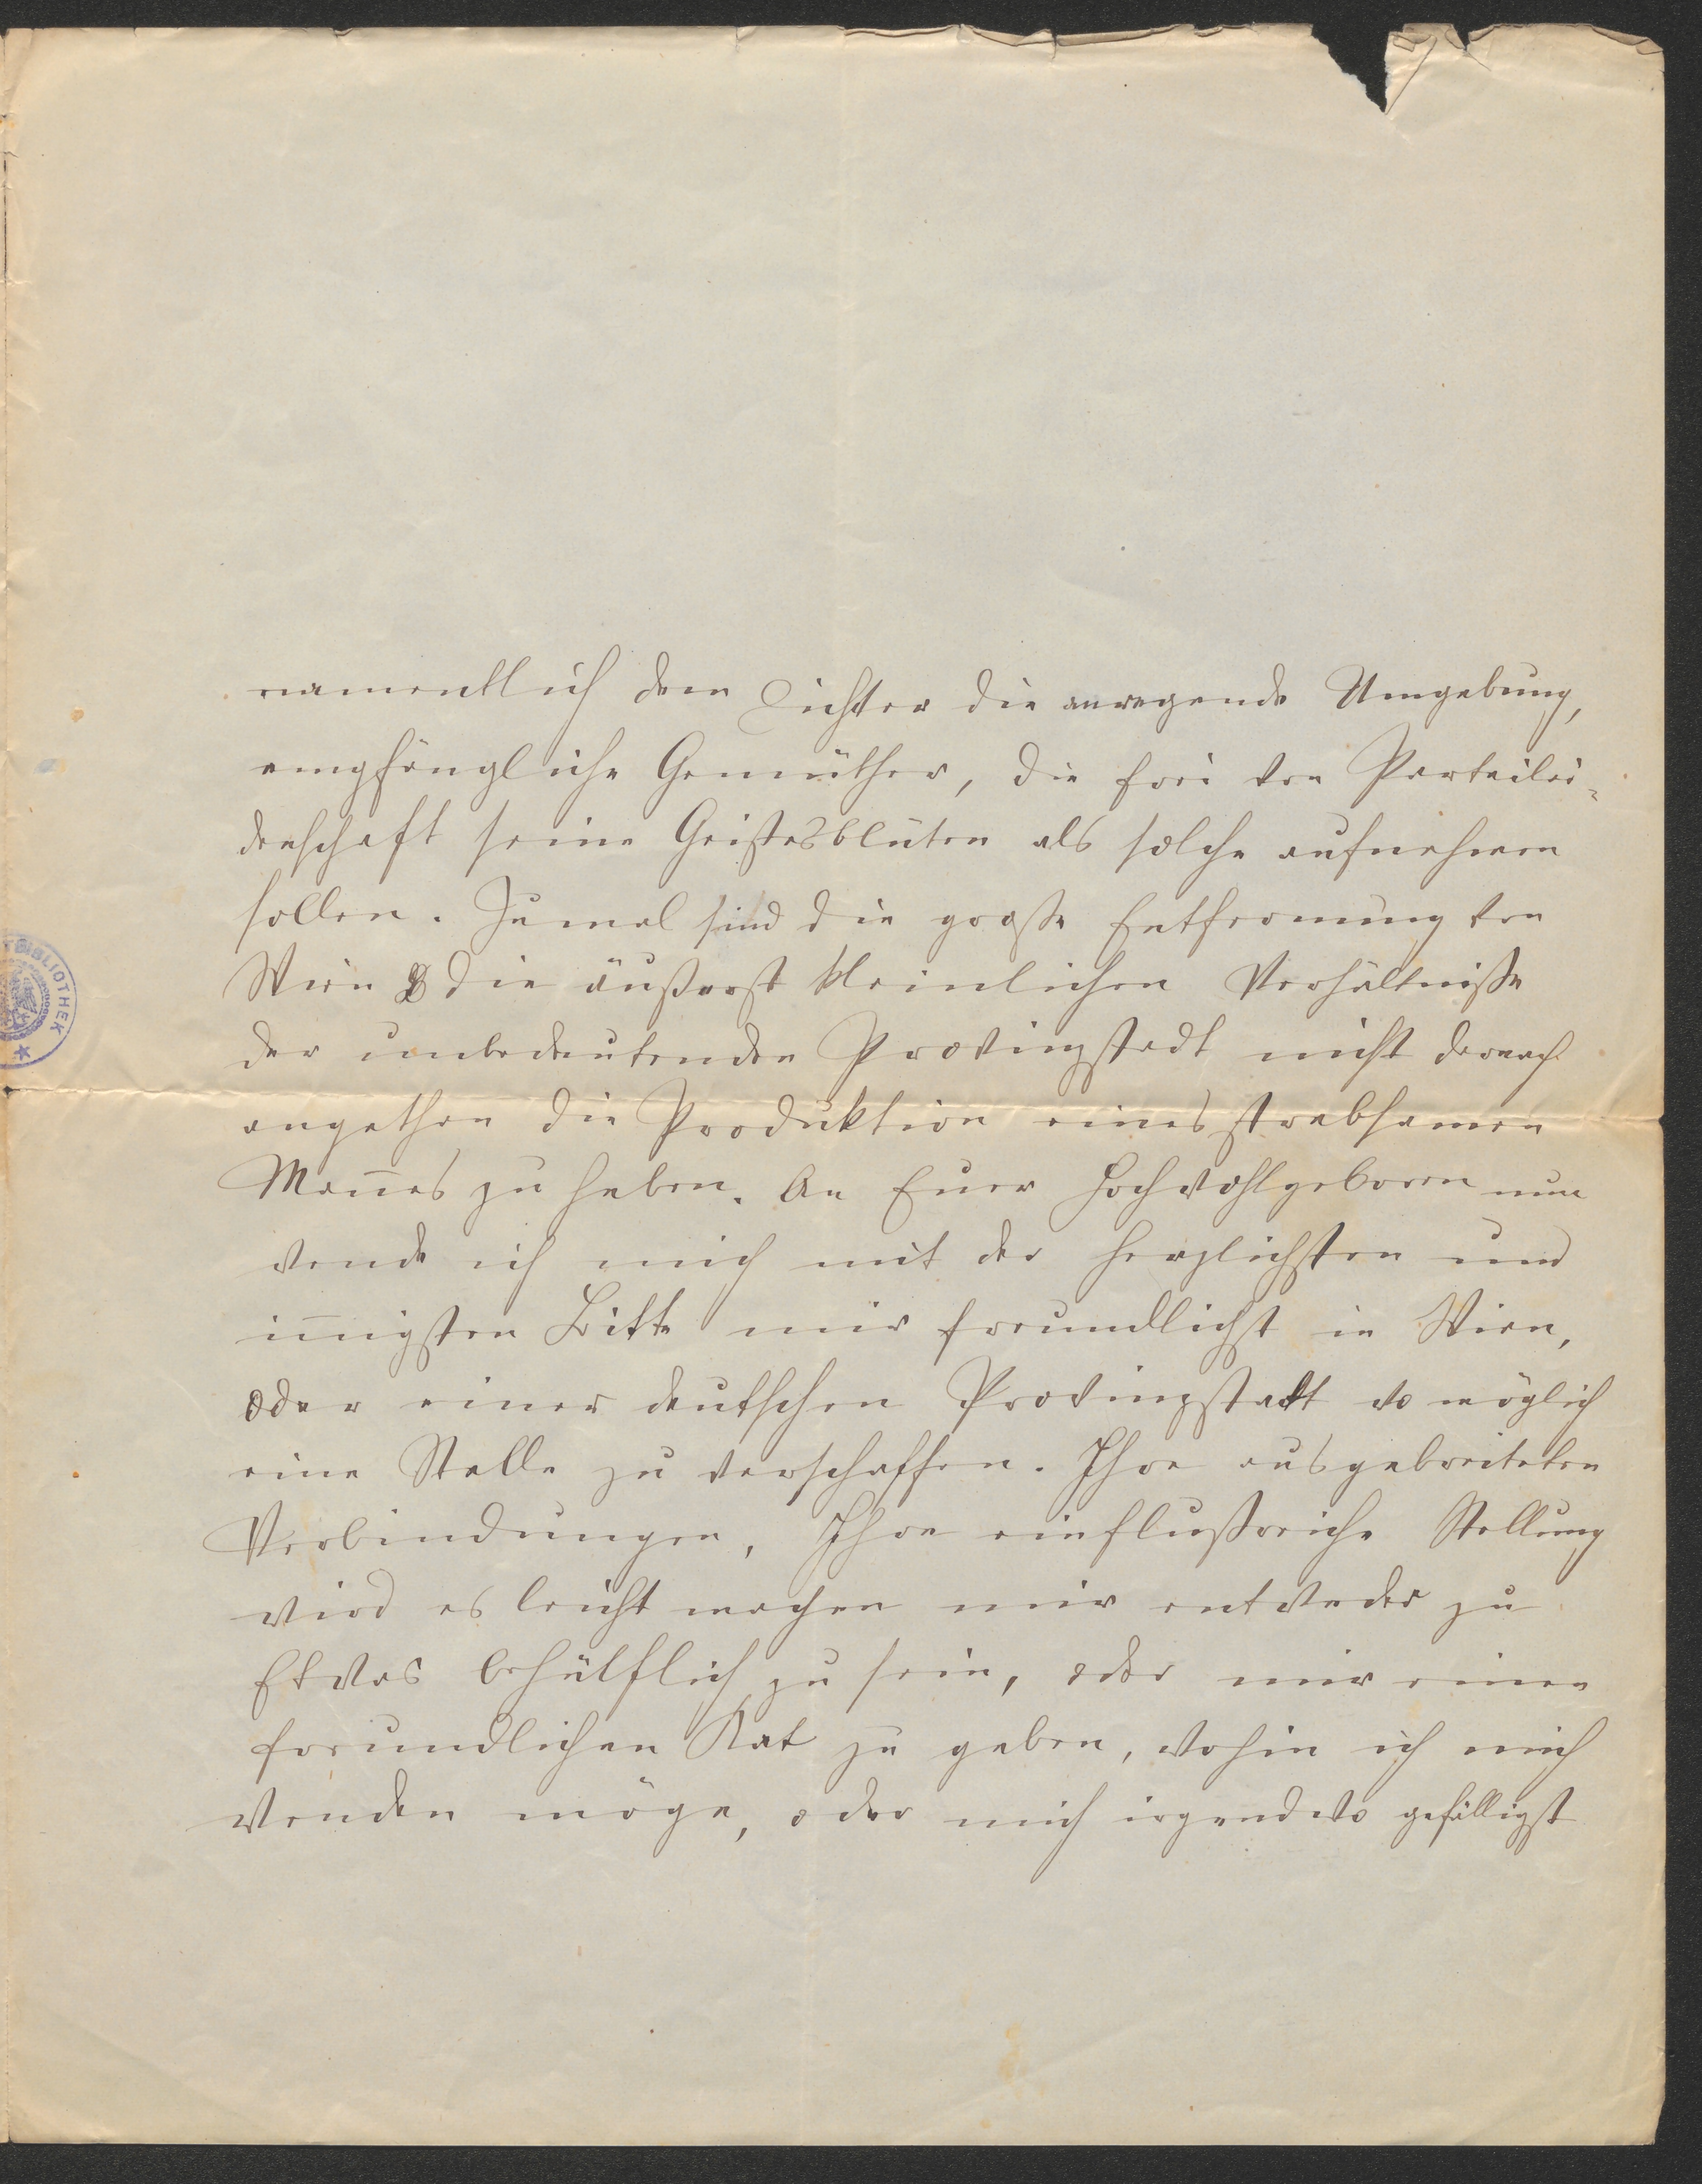 namentlich dem Dichter die anregende Umgebung,
empfängliche Gemüther, die frei von Parteilei-
denschaft seine Geistesblüten als solche aufnehmen
sollen. Zumal sind die große Entfernung von
Wien & die äußerst kleinlichen Verhältniße
der unbedeutenden Provinzstadt nicht darnach
angethan die Produktion eines strebsamen
Mañes zu heben. An Euer Hochwohlgeboren nun
wende ich mich mit der herzlichsten und
iñigsten Bitte mir freundlichst in Wien,
oder einer deutschen Provinzstadt wo möglich
eine Stelle zu verschaffen. Ihre ausgebreiteten
Verbindungen, Ihre einflußreiche Stellung
wird es leicht machen mir entweder zu
Etwas behülflich zu sein, oder mir einen
freundlichen Rat zu geben, wohin ich mich
wenden möge, oder mich irgendwo gefälligst
BIBLIOTHEK